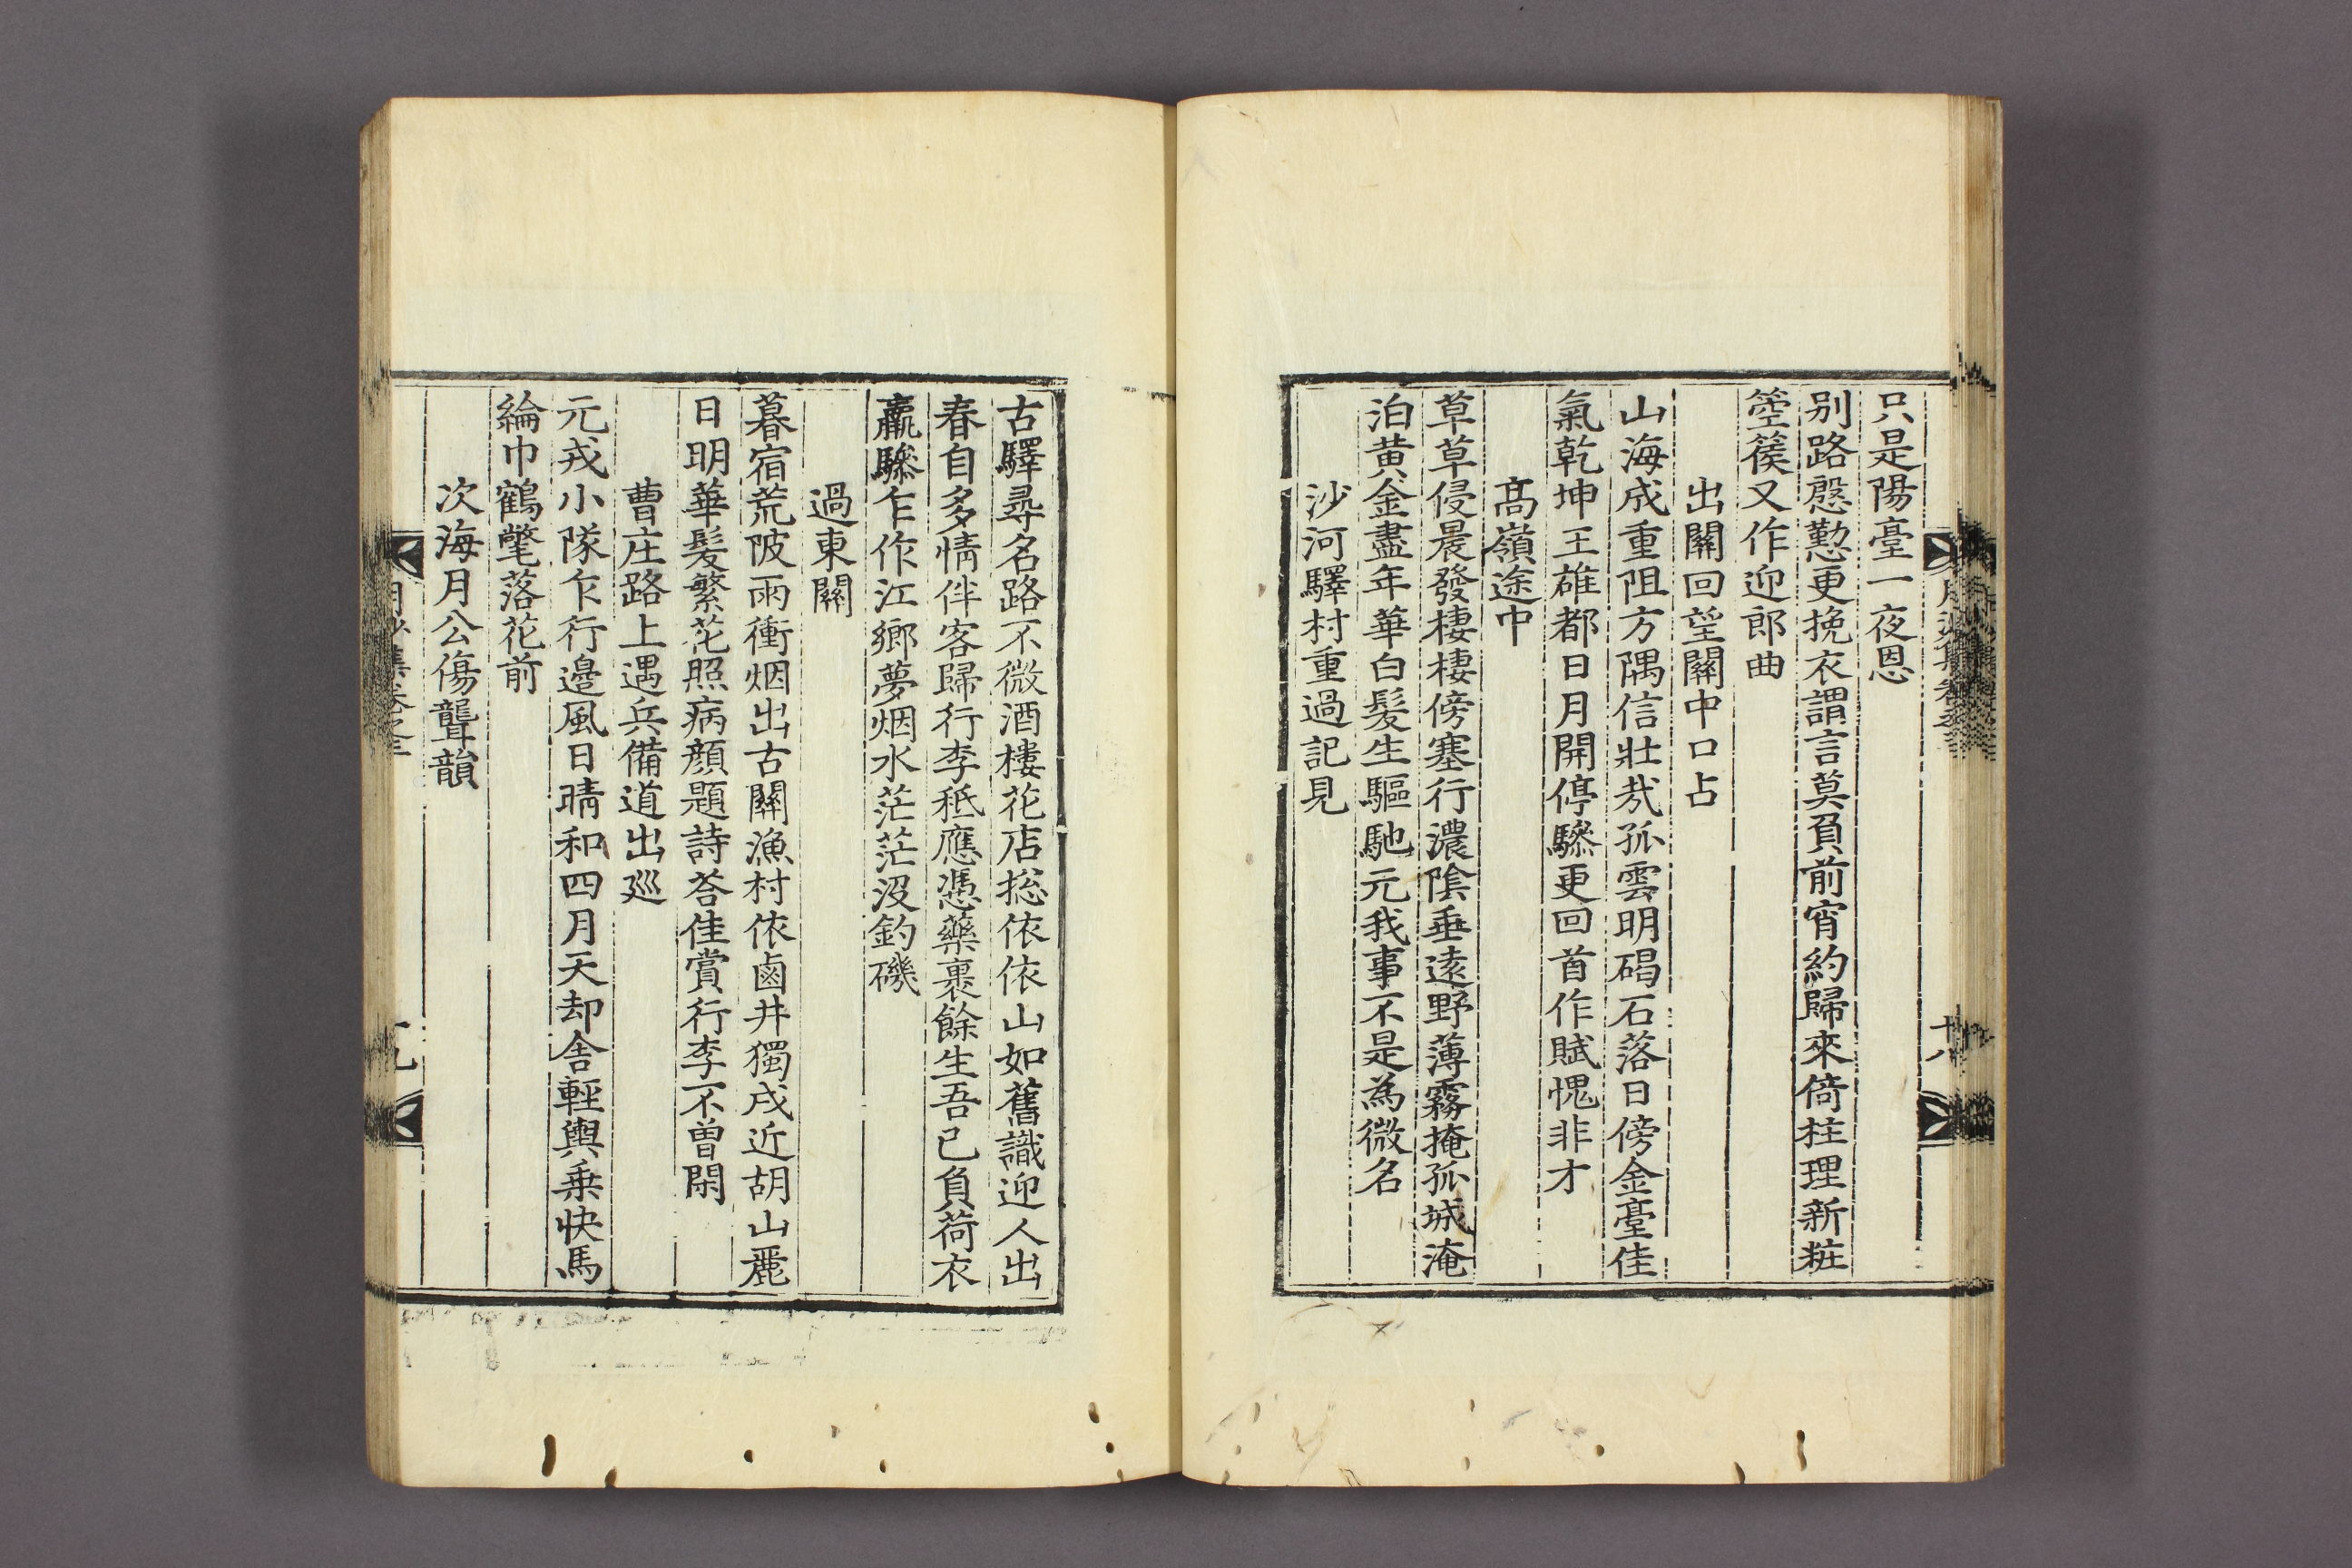 只是陽臺一夜恩
別路慇懃更挽衣謂言莫負前宵約歸來倚柱理新粧
箜篌又作迎郎曲
出關回望關中口占
山海成重阻方隅信壯哉孤雲明碣石落日傍金臺佳
氣乾坤王雄都日月開停驂更回首作賦愧非才
高嶺途中
草草侵晨發棲棲傍塞行濃陰垂遠野薄霧掩孤城淹
泊黃金盡年華白髮生驅馳元我事不是為微名
沙河驛村重過記見
古驛尋名路不微酒樓花店摠依依山如舊識迎人出
春自多情伴客歸行李秪應憑藥裹餘生吾已負荷衣
羸驂乍作江鄉夢烟水茫茫沒釣磯
過東關
暮宿荒陂雨衝烟出古關漁村依鹵井獨戍近胡山麗
日明華髮繁花照病顏題詩荅佳賞行李不曾閑
曹庄路上遇兵備道出廵
元戎小隊乍行邊風日晴和四月天却舍輕輿乗快馬
綸巾鶴氅落花前
次海月公傷聾韻
月沙集卷之三
十九
十八